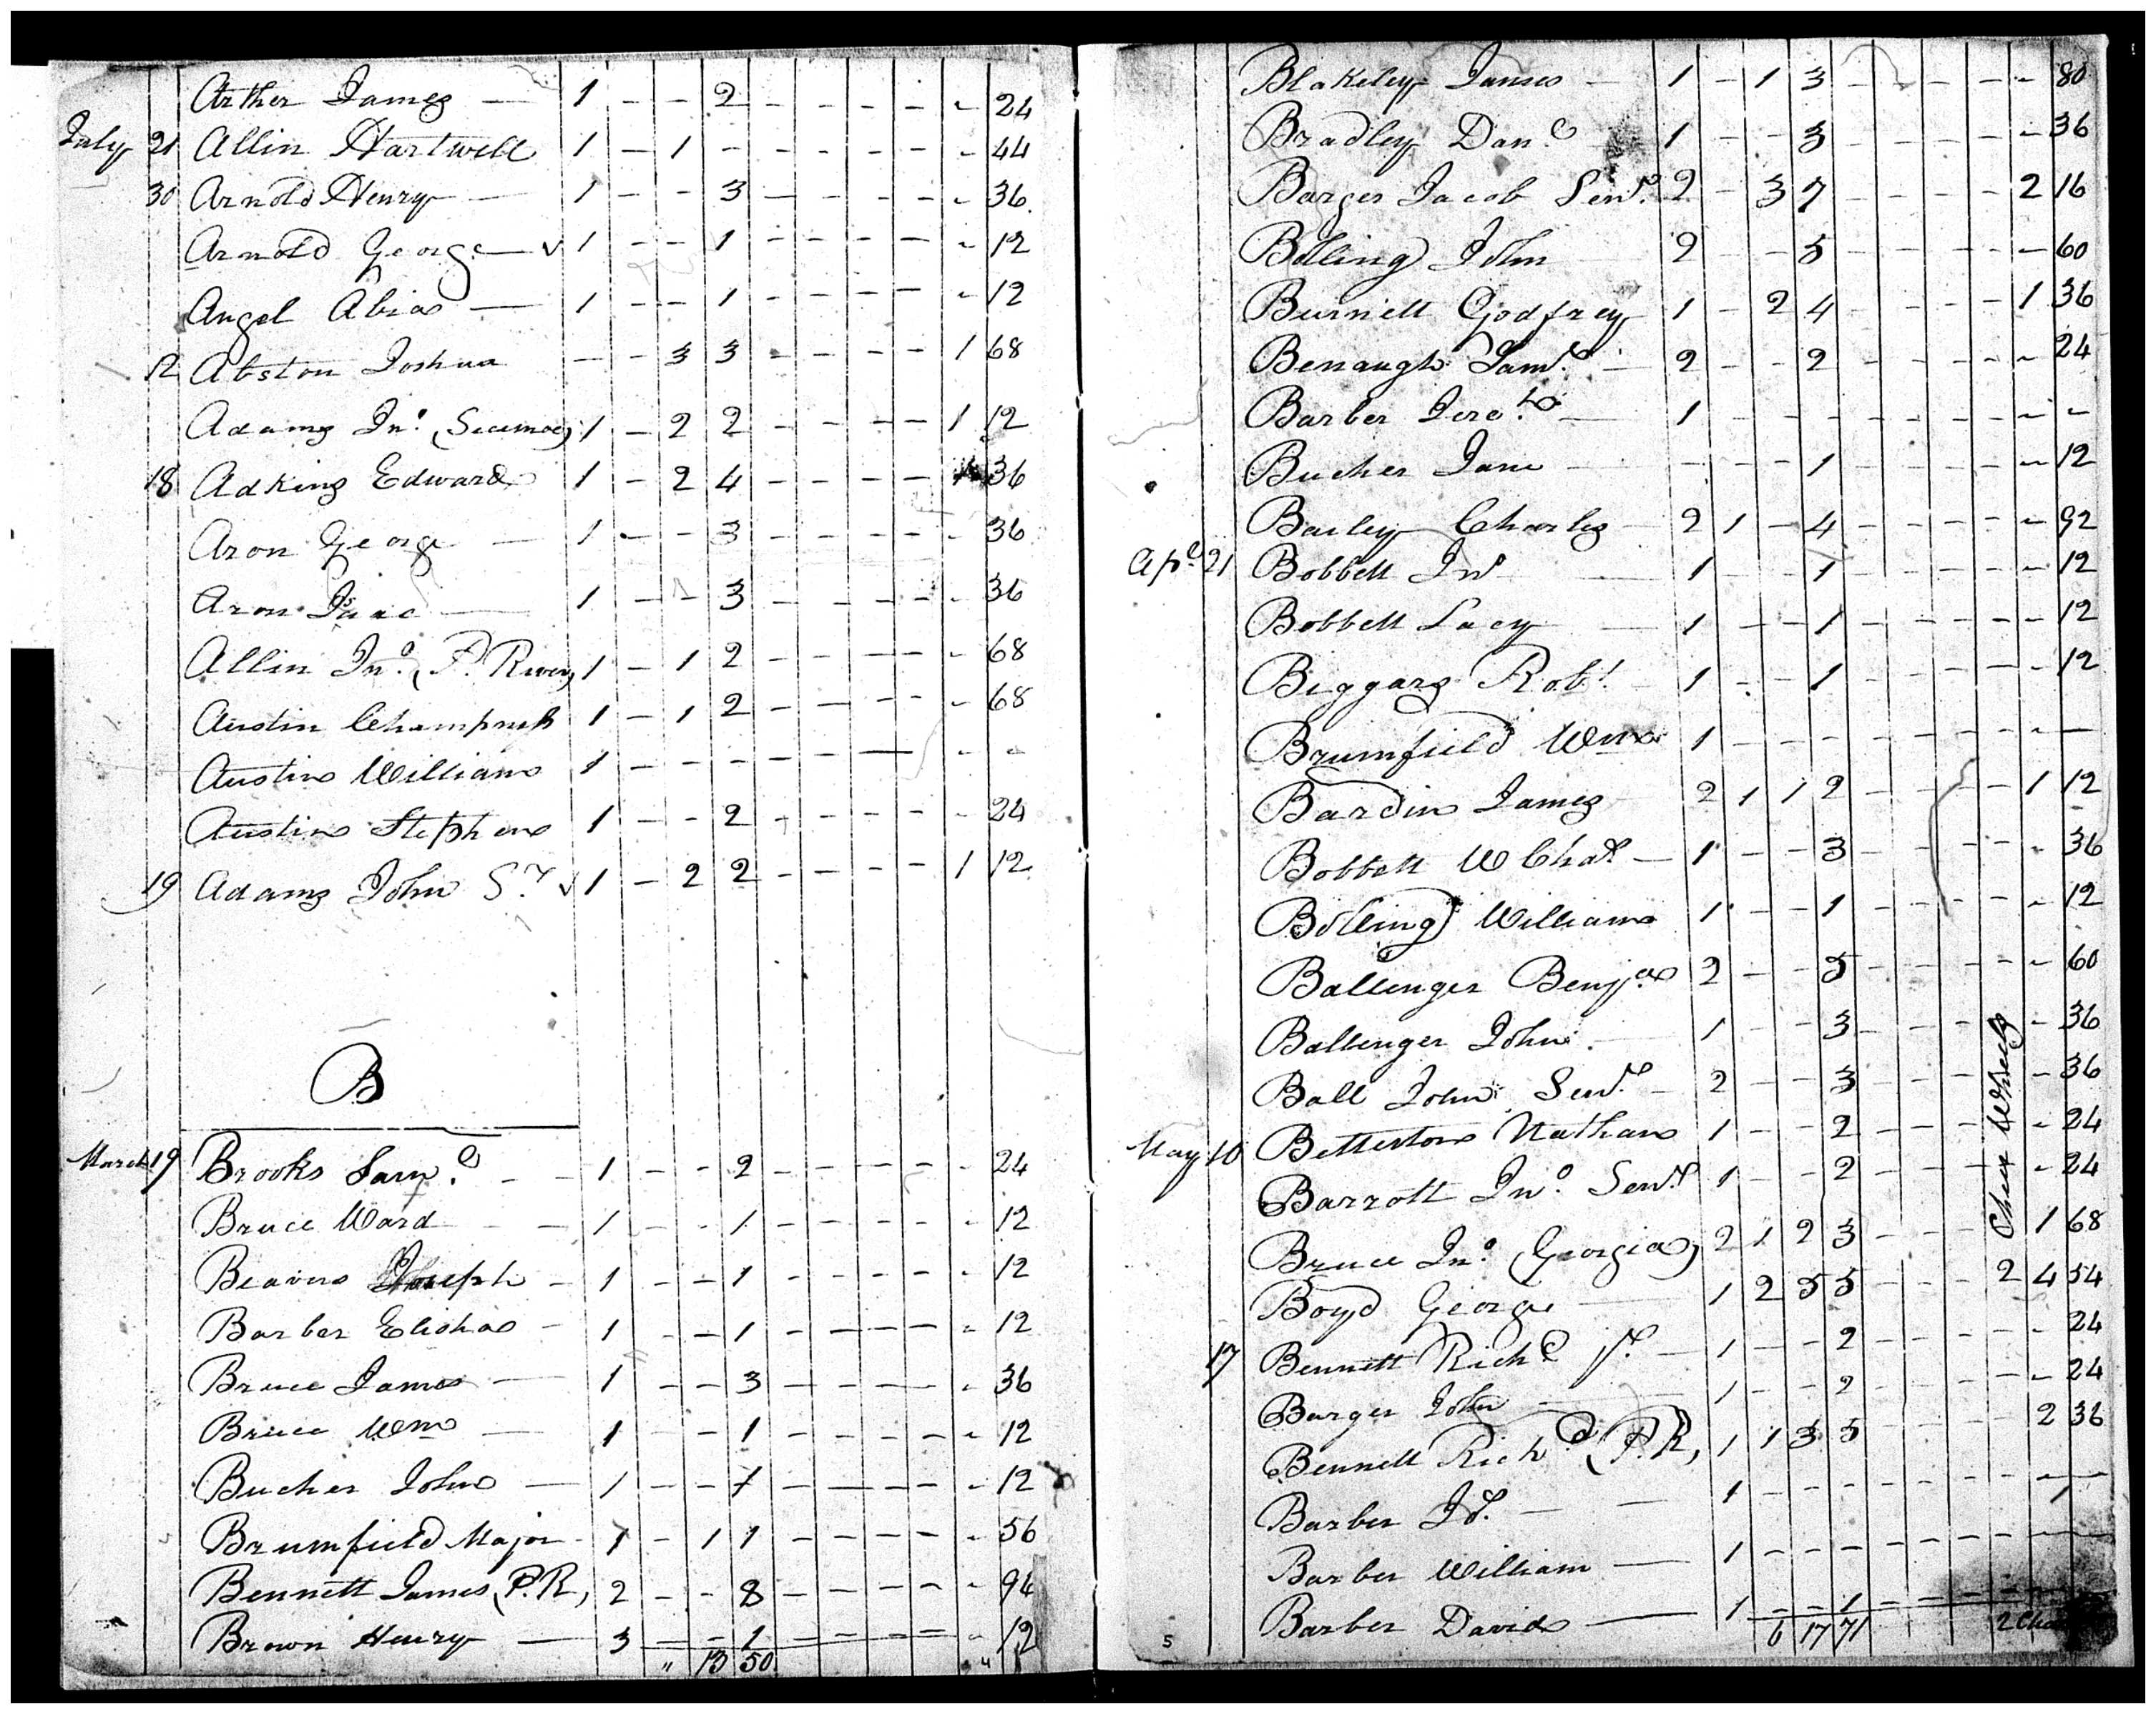 Arther James — 1 - - 2 - - - - - 24
July 21 Allin Hartwell 1 - 1 - - - - - - 44
30 Arnold Henry — 1 - - 3 - - - - - 36
Arnold George — √ 1 - - 1 - - - - - 12
Angel Abia — 1 - - 1 - - - - - 12
12 Abston Joshua - - 3 3 - - - - 1 68
Adams Jno. ( 1 - 2 2 - - - - 1 12
18 Adkins Edward 1 - 2 4 - - - - 1 36
Aron George — 1 - - 3 - - - - - 36
Aron Isaac — 1 - - 3 - - - - - 36
Allin Jno. (P. River) 1 - 1 2 - - - - - 68
Austin Champness 1 - 1 2 - - - - - 68
Austin William 1 - - - - - - - - -
Austin Stephen 1 - - 2 - - - - - 24
19 Adams John Sr √ 1 - 2 2 - - - - 1 12
B
March 19 Brooks Saml. - - 1 - - 2 - - - - - 24
Bruce Ward - - 1 - - 1 - - - - - 12
Beavers Joseph - 1 - - 1 - - - - - 12
Barber Elisha - 1 - - 1 - - - - - 12
Bruce James — 1 - - 3 - - - - - 36
Bruce Wm — 1 - - 1 - - - - - 12
Bucher John — 1 - - 1 - - - - - 12
Brumfield Major - 1 - 1 1 - - - - - 56
Bennett James (P.R) 2 - - 8 - - - - - 96
Brown Henry — 3 - - 1 - - - - - 12
" 13 50 4
Blakeley James — 1 - 1 3 - - - - - 80
Bradley Danl. 1 - - 3 - - - - - 36
Barger Jacob Senr. 2 - 3 7 - - - - 2 16
Bolling John 2 - - 5 - - - - - 60
Burnett Godfrey 1 - 2 4 - - - - 1 36
Benaugh Saml. - 2 - - 2 - - - - - 24
Barber Jereh. — 1 - - - - - - - - -
Bucher Jane - - - - 1 - - - - - 12
Bailey Charles - 2 1 - 4 - - - - - 92
Apl. 21 Bobbett Jno — 1 - - 1 - - - - - 12
Bobbett Lacy — 1 - - 1 - - - - - 12
Biggars Robt. - 1 - - 1 - - - - - 12
Brumfield Wm 1 - - - - - - - - —
Bardin James 2 1 1 2 - - - - 1 12
Bobbett W Chas — 1 - - 3 - - - - - 36
Bolling William 1 - - 1 - - - - - 12
Ballenger Benja 2 - - 5 - - - - - 60
Ballenger John. 1 - - 3 - - - - - 36
Ball John Senr. - 2 - - 3 - - - - - 36
May 10 Betterton Nathan 1 - - 2 - - - - - 24
Barrott Jno. Senr. 1 - - 2 - - - - - 24
Bruce Jno. (Georgia) 2 1 2 3 - - - 1 68
Boyd George — 1 2 5 5 - - - 2 4 54
Chear Wheels
17 Bennett Richd. Jr. - 1 - - 2 - - - - - 24
Barger John - 1 - - 2 - - - - - 24
Bennett Richd. (P.R) 1 1 3 5 2 36
Barber — 1 - - - - - - - - —
Barber William — 1 - - - - - - - - —
Barber David — 1 - - 1 - - - - -
5 6 17 71 2